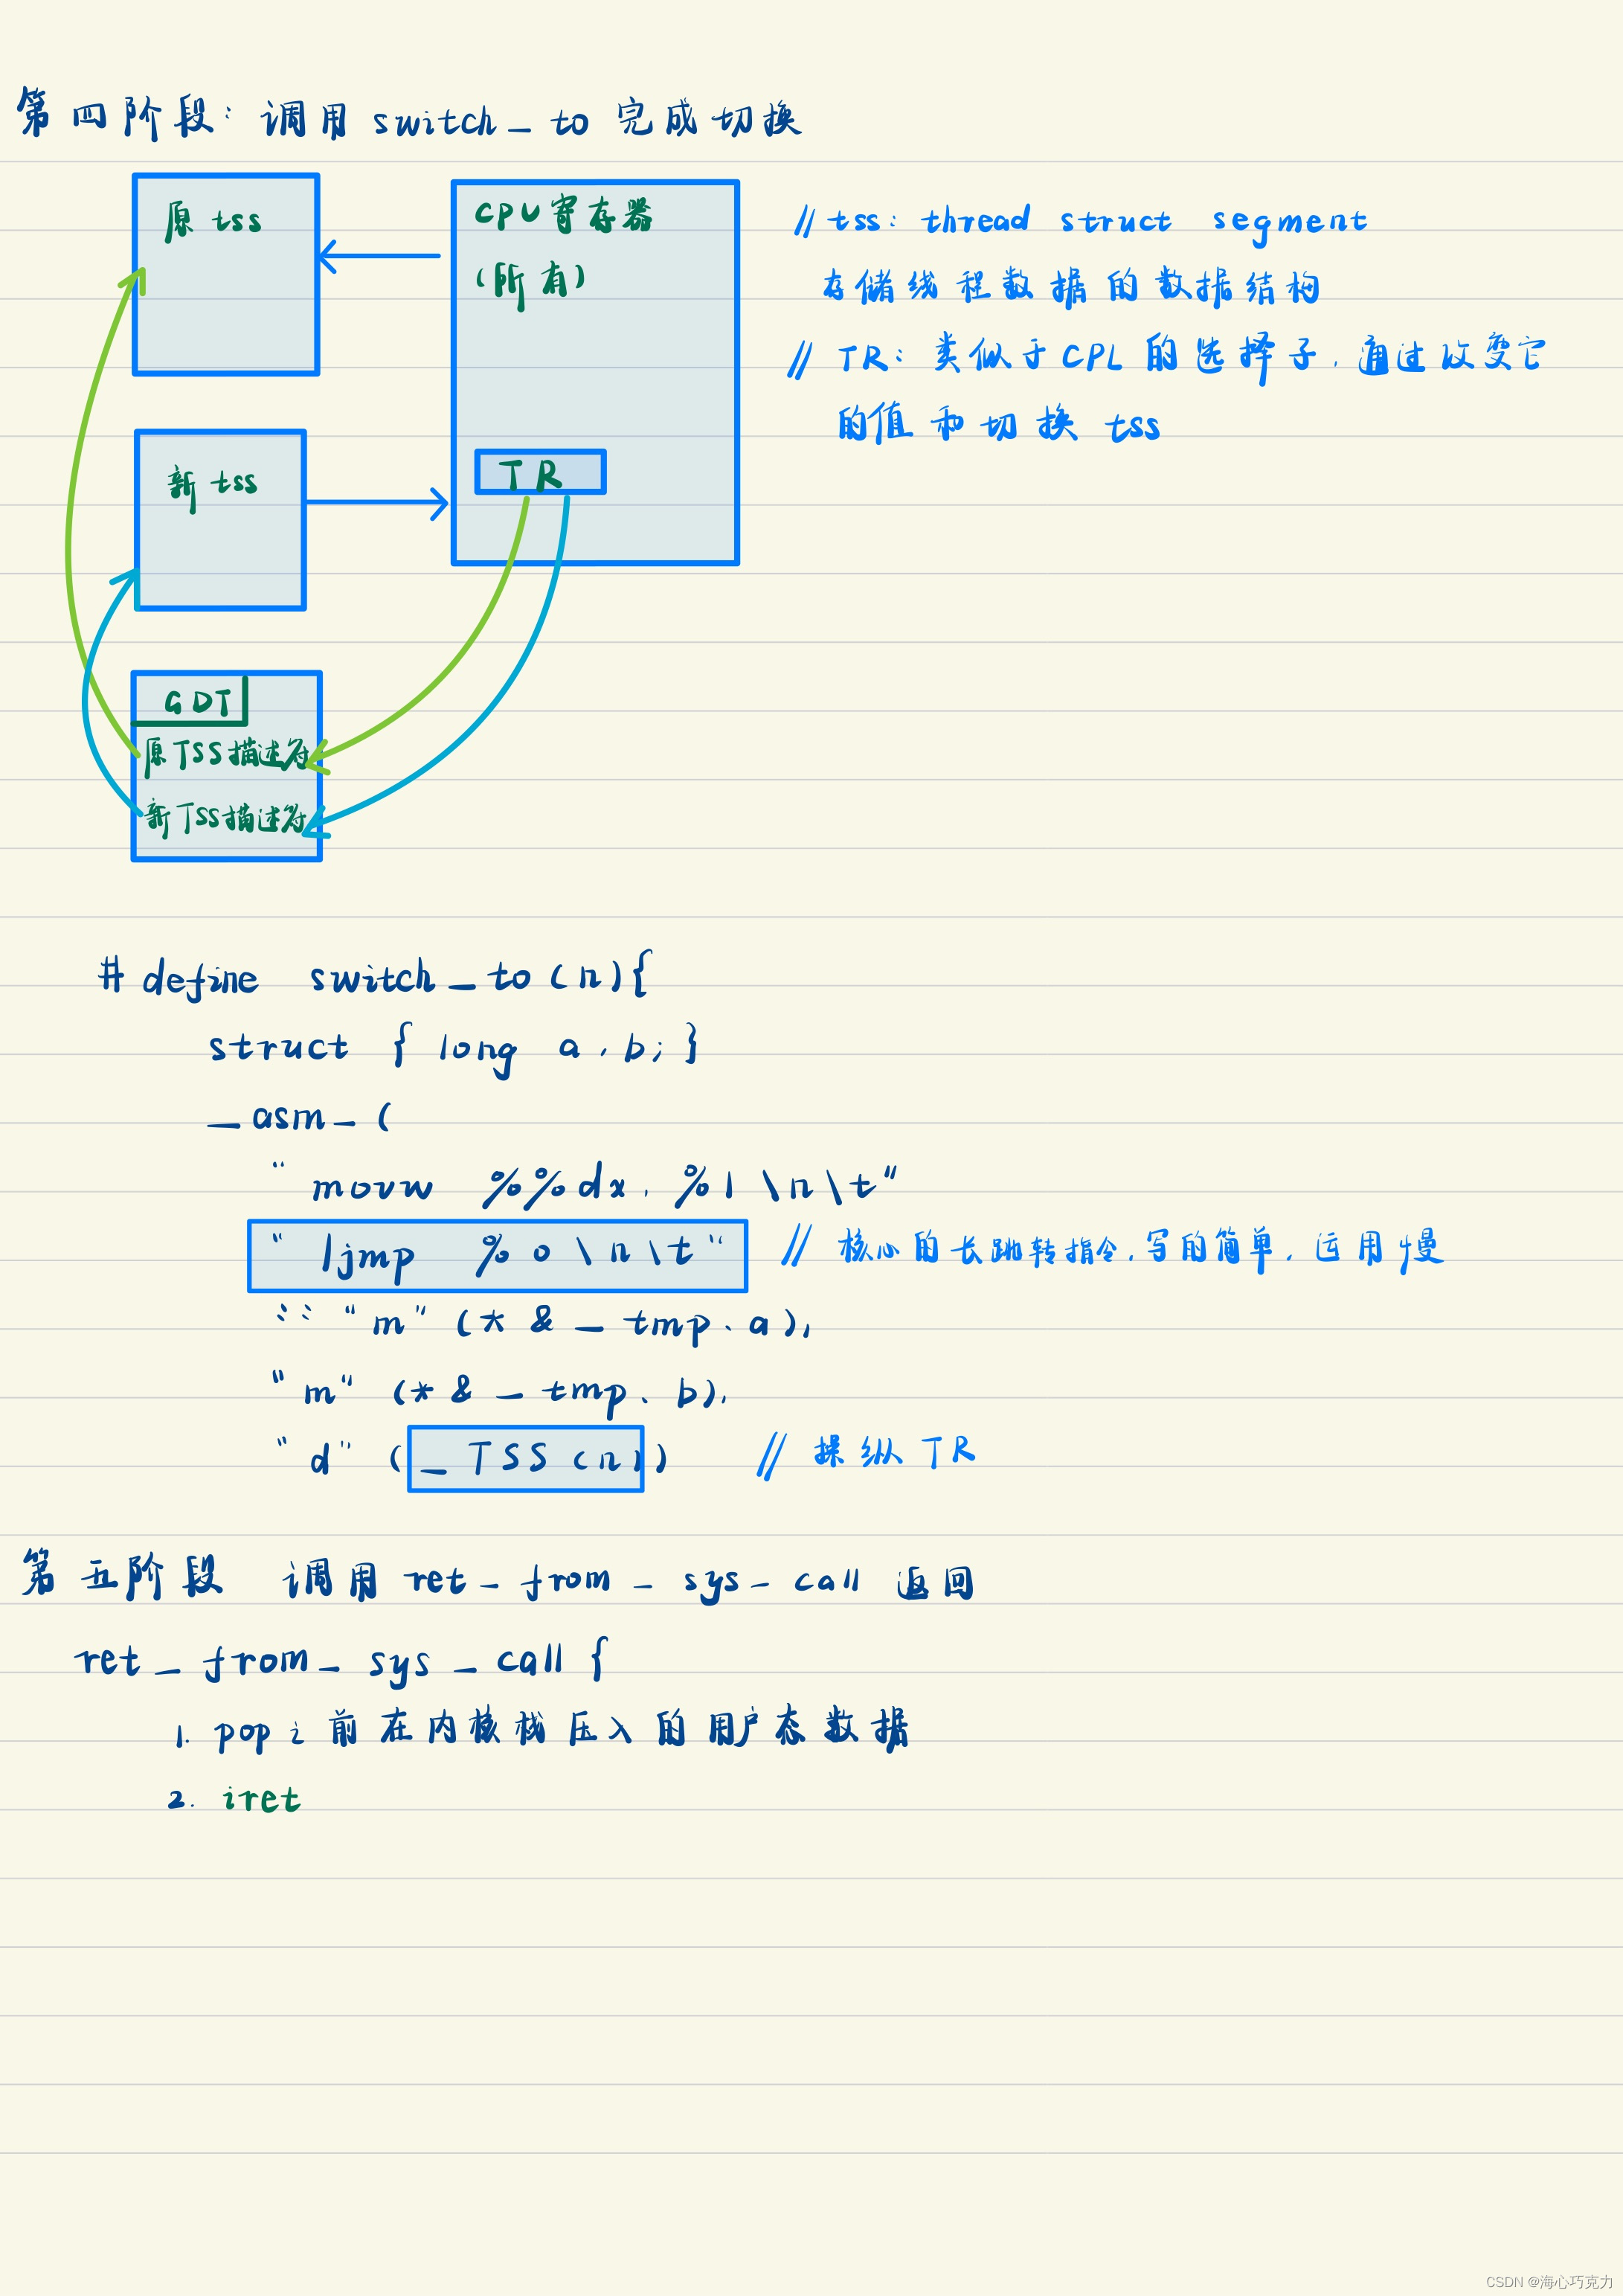 第四阶段：调用 switch_to 完成切换
原 tss
CPU寄存器
(所有)
// tss: thread struct segment
存储线程数据的数据结构
// TR: 类似于CPL的选择子，通过改变它
的值和切换 tss
新 tss
TR
GDT
原TSS描述符
新TSS描述符
# define switch_to(n){
struct { long a, b; }
_asm_(
"movw %%dx, %1\n\t"
"ljmp %0\n\t" // 核心的长跳转指令，写的简单，运用慢
::"m" (*&_tmp.a),
"m" (*&_tmp.b),
"d" (_TSS(n)) // 操纵TR
第五阶段 调用 ret_from_sys_call 返回
ret_from_sys_call {
1. pop之前在内核栈压入的用户态数据
2. iret
CSDN @海心巧克力